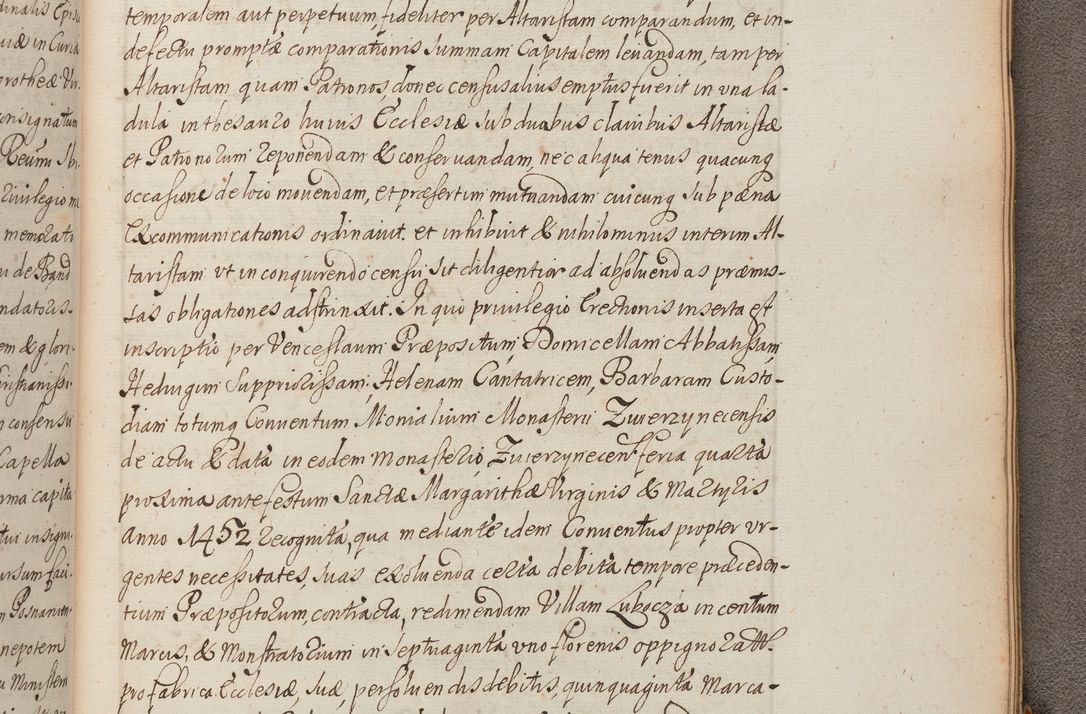 temporalem aut perpetuum, fideliter per Altaristam comparandum, et in-
defectu promptæ comparationis summam Capitalem leuandam, tam per
Altaristam quam Patronos, donec census alius emptus fuerit in vna la-
dula in thesauro huius Ecclesiæ sub duabus clauibus Altaristæ
et Patronorum reponendam & conseruandam, nec aliqua tenus quacunq
occasione de loco mouendam, et præsertim mutuandam cuicunq sub pæna
Excommunicationis ordinauit et inhibuit & nihilominus interim Al-
taristam vt in conquirendo censu sit diligentior ad absoluendas præmis-
sas obligationes adstrinxit. In quo priuilegio Erectionis inserta est
inscriptio per Venceslaum Præpositum, Domicellam Abbatissam
Heduigim Suppriorissam, Helenam Cantatricem, Barbaram Custo-
diam totumq Conuentum Monialium Monasterii Zwierzynecensis
de actu & data in eodem Monasterio Zwierzynecen feria quarta
proxima ante festum Sanctæ Margarithæ Virginis & Martyris
Anno 1452 recognita, qua mediante idem Conuentus propter vr-
gentes necessitates, suas exoluenda certa debita tempore præceden-
tium Præpositorum, contracta, redimendam Villam Lubocza in centum
Marcis, & Monstratorium in septuaginta vno florenis oppignoratt.
pro fabrica Ecclesiæ, suæ persoluendis debitis, quinquaginta Marca-